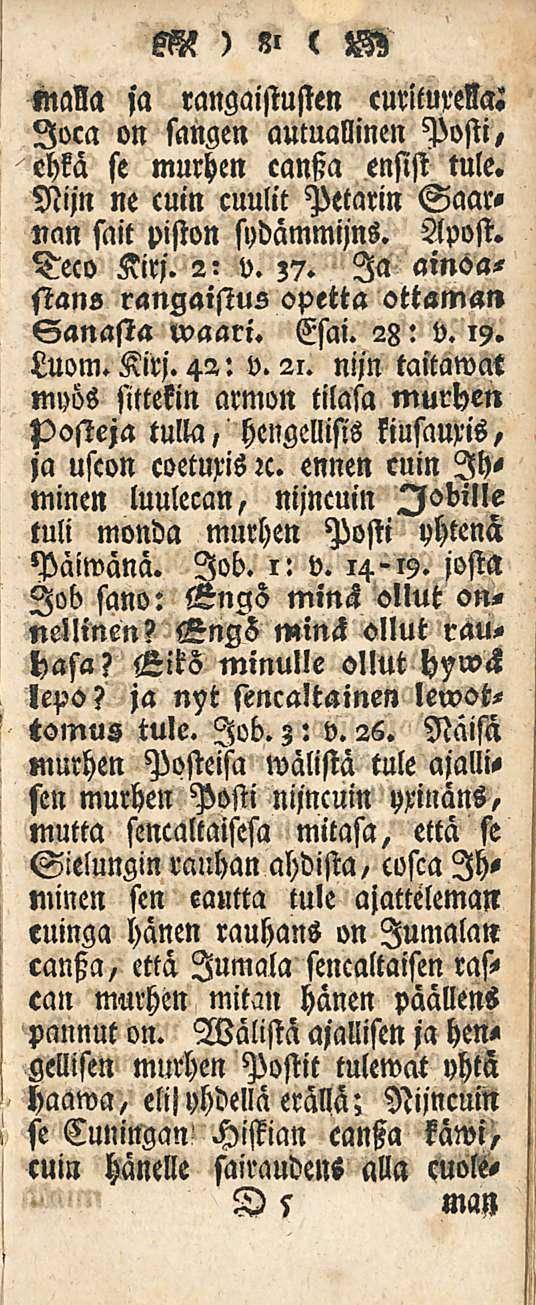 ) 81 (
malla ja rangaistusten curituxella:
Joca on sangen autuallinen Posti,
ehkä se murhen canßa ensist tule.
Nijn ne cuin cuulit Petarin Saar-
nan sait piston sydämmijns. Apost.
Teco Kirj. 2: v. 37. Ja ainoa-
stans rangaistus opetta ottaman
Sanasta waari. Esai. 28: v. 19.
Luom. Kirj. 42: v. 21. nijn taitawat
myös sittekin armon tilasa murhen
Posteja tulla, hengellisis kiusauxis,
ja uscon coetuxis ꝛc. ennen cuin Ih-
minen luulecan, nijncuin Jobille
tuli monda murhen Posti yhtenä
Päiwänä. Job. 1: v. 14-19. josta
Job sano: Engö minä ollut on-
nellinen? Engö minä ollut rau-
hasa? Eikö minulle ollut hywä
lepo? ja nyt sencaltainen lewot-
tomus tule. Job. 3: v. 26. Näisä
murhen Posteisa wälistä tule ajalli-
sen murhen Posti nijncuin yxinäns,
mutta sencaltaisesa mitasa, että se
Sielungin rauhan ahdista, cosca Ih-
minen sen cautta tule ajatteleman
cuinga hänen rauhans on Jumalan
canßa, että Jumala sencaltaisen ras-
can murhen mitan hänen päällens
pannut on. Wälistä ajallisen ja hen-
gellisen murhen Postit tulewat yhtä
haawa, elij yhdellä erällä; Nijncuin
se Cuningan Hiskian canßa käwi,
cuin hänelle sairaudens alla cuole-
D 5 man